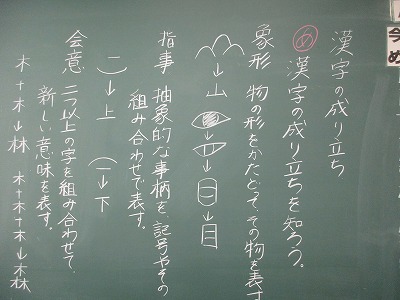 今め
漢字の成り立ち
め 漢字の成り立ちを知ろう。
象形 物の形をかたどって、その物を表す
→山 → → →目
指事 抽象的な事柄を、記号やその
組み合わせで表す。
→上 →下
会意 二つ以上の字を組み合わせて、
新しい意味を表す。
木+木→林 木+木+木→森